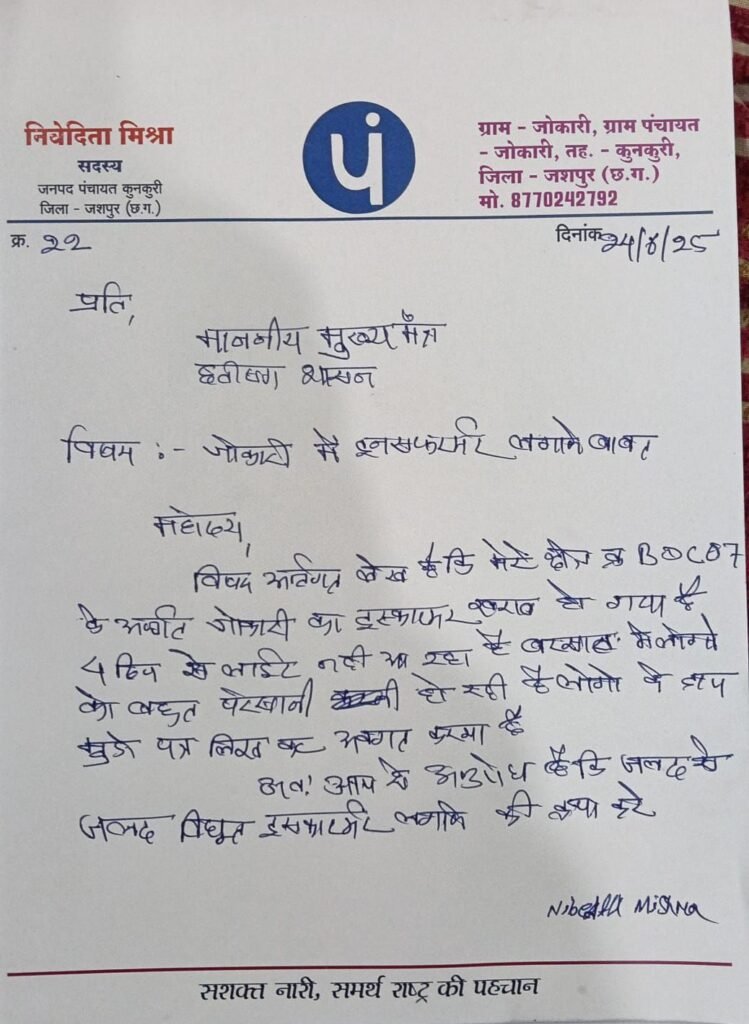 निवेदिता मिश्रा
सदस्य
जनपद पंचायत कुनकुरी
जिला - जशपुर (छ.ग.)
पं
ग्राम - जोकारी, ग्राम पंचायत
- जोकारी, तह. - कुनकुरी,
जिला - जशपुर (छ.ग.)
मो. 8770242792
क्र. २२
दिनांक २५/४/२५
प्रति,
माननीय मुख्य मंत्र
छतीसग शासन
विषय :- जोकारी में इनसफार्मर लगाने बाबत
महोदय,
विषय अर्तगत लेख है कि मेरे क्षेत्र BDC07
के अर्न्तगत जोकारी का इस्फार्मर खराब हो गया है
4 दिन से लाईट नही आ रहा है बरसात में लोगो
को बहुत परेसानी हो रही है लोगो के द्वारा
मुझे पत्र लिख कर अवगत करया है
अतः आप से अनुरोध है कि जलद से
जलद विधुत इस्फार्मर लगाने की कृपा करे
Nibedita Mishra
सशक्त नारी, समर्थ राष्ट्र की पहचान